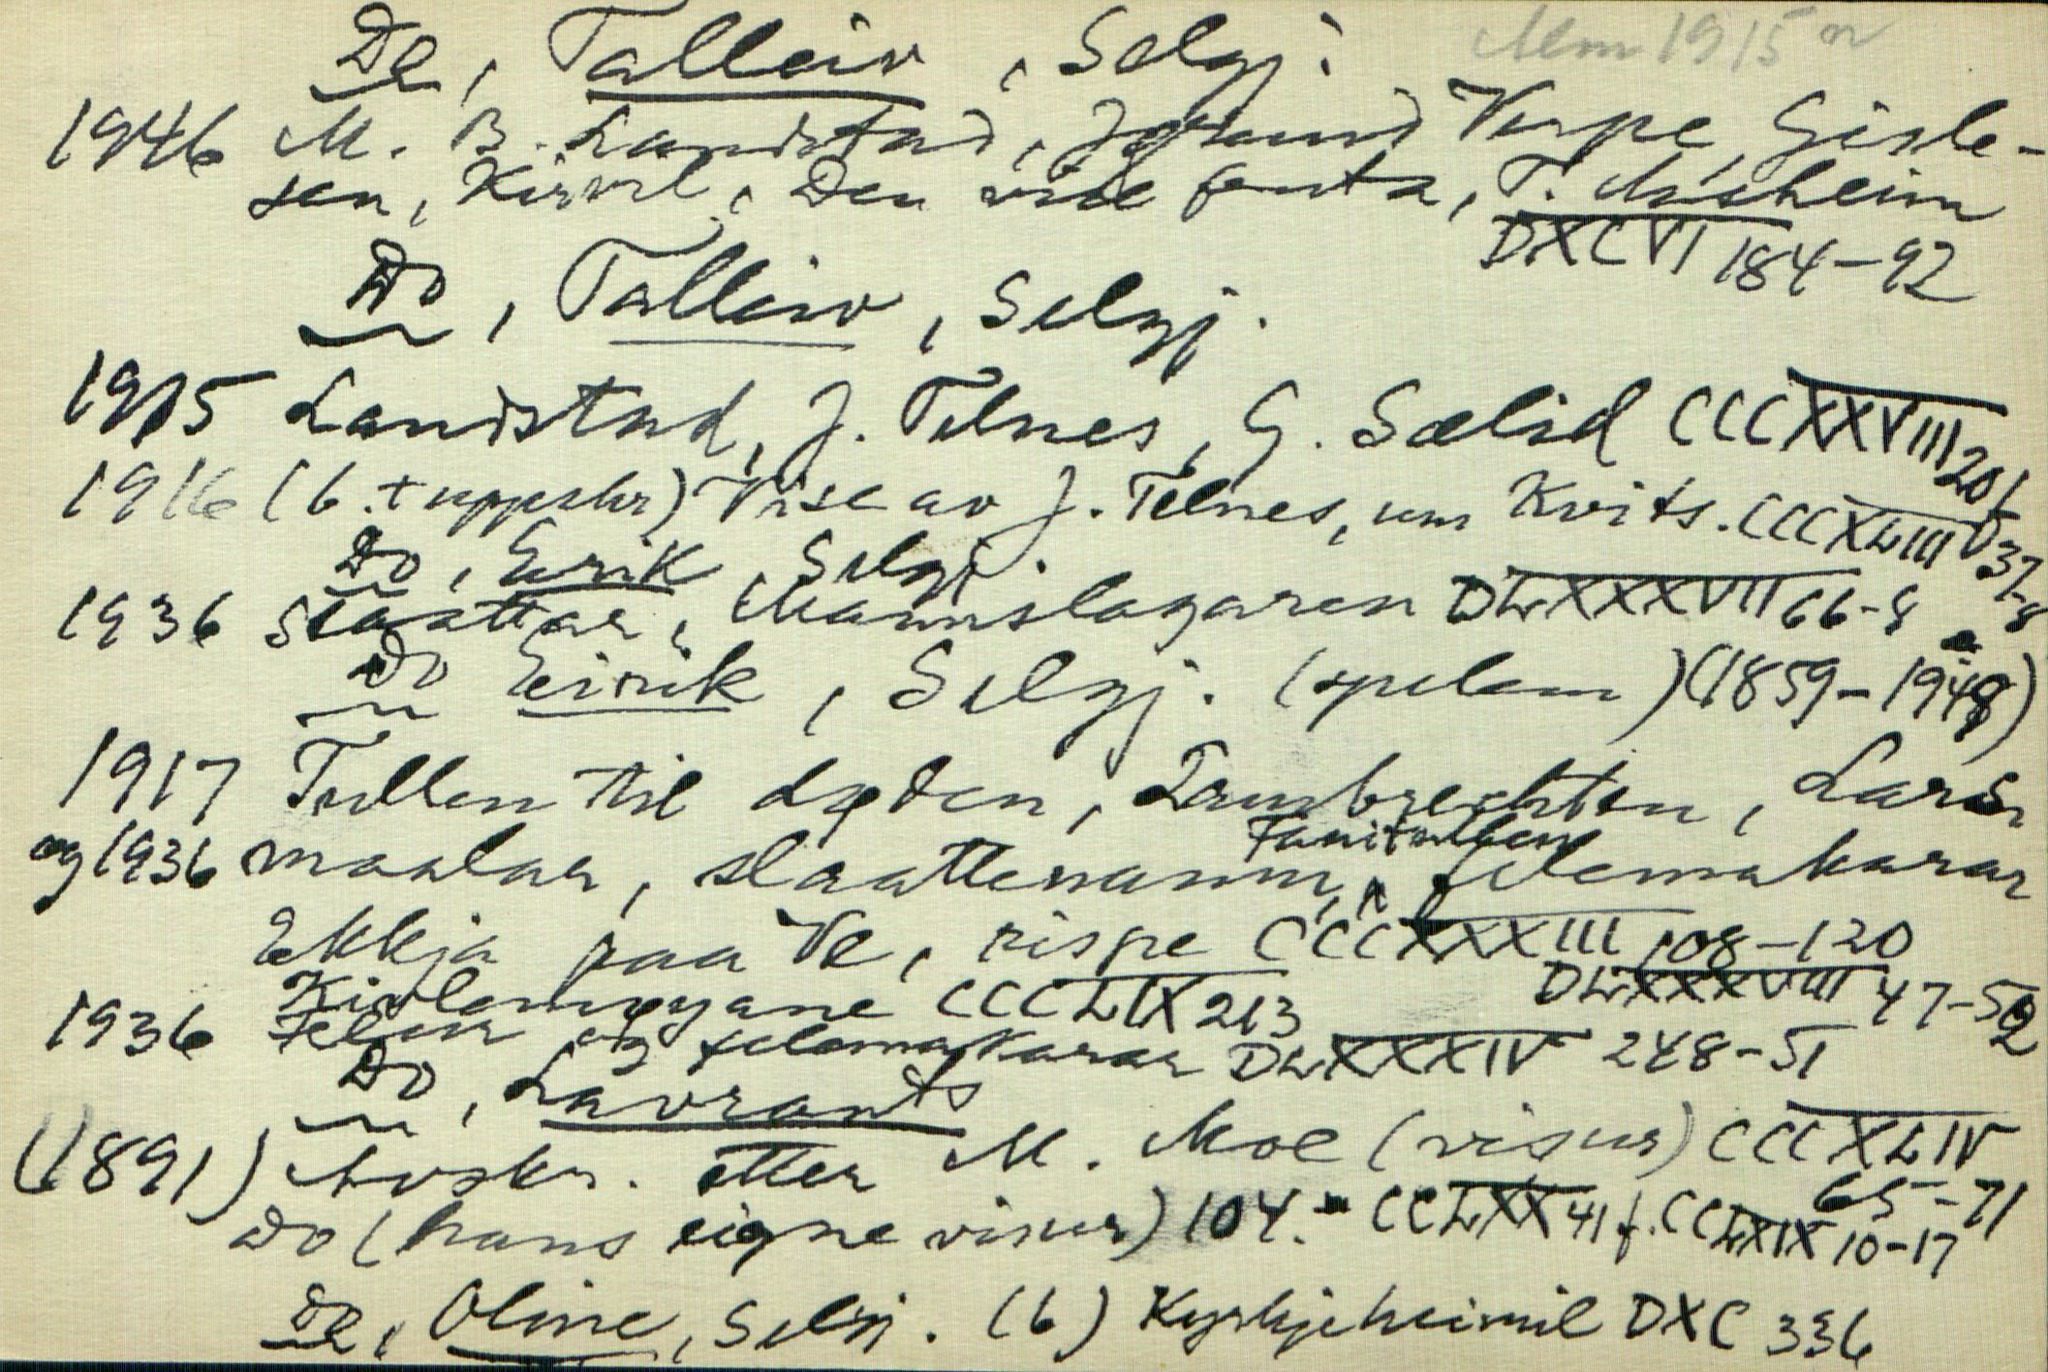 Do, Talleiv, Selgj.
1946 M. B. Landstad, Jørund Verpe, Gisle-
sen, Kirvil, Den vide fanta, T. Aasheim
DXCVI 184-92
Do, Talleiv, Selgj.
1915 Landstad, J. Telnes, G. Sælid CCCXXVIII 20f
1916 (6. + uppskr) Vise av J. Telnes, um Kvits. CCCXLIII 37-8
Do, Eirik, Selgj.
1936 Slaattar, Mannslagaren DLXXXVII 66-8
Do Eirik, Selgj. (spelem) (1859-1948)
1917 Tullen til døden, Lars
og 1936 maalar, slaattenamn, Fanitullen telemakarar
Ekkja paa Ve, rispe CCCXXXIII 108-120
Kivlemøyane CCCLIX 213 DLXXXVIII 47-52
1936 Felur og felemakarar DLXXXIV 248-51
Do, Lavrants
(1891) Avskr. etter M. Moe (visur) CCCXLIV
65-71
Do (hans eigne visur) 104. - CCLXX 41f. CCLXIX 10-17
Do, Oline, Selgj. (6) Kyrkjeheimil DXC 336